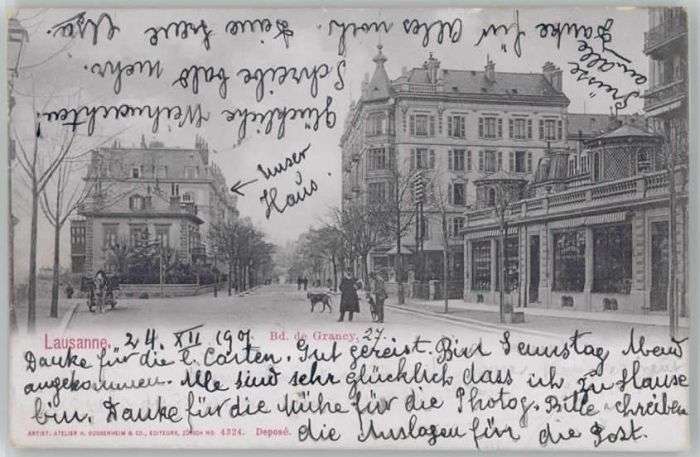 Lausanne. 24. XII 1901 Bd. de Grancy, 27.
Danke für die l. Carten. Gut gereist. Bin Samstag Abend
angekommen. Alle sind sehr glücklich dass ich zu Hause
bin. Danke für die Mühe für die Photog. Bitte schreiben
die Auslagen für die Post.
ARTIST. ATELIER H. GUGGENHEIM & CO., EDITEURS, ZÜRICH NO. 4324. Deposé.
Unser
Haus.
Glückliche Weihnachten!
Schreibe bald mehr.
Danke für Alles noch. Deine treue Elsa.
Grüsse
an alle